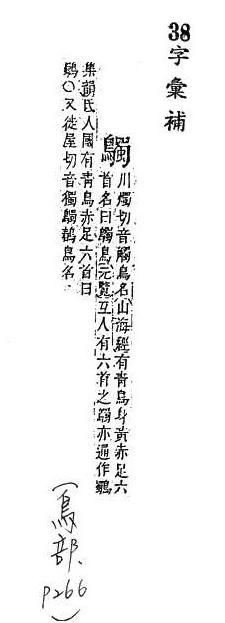 38字彙補
鸀
川燭切音觸鳥名山海經有青鳥身黃赤足六
首名曰鸀鳥元覽互人有六首之鸀亦通作
集韻氏人國有青鳥赤足六首曰
〇又徒屋切音獨鸀鳥名
(鳥部、
P266)